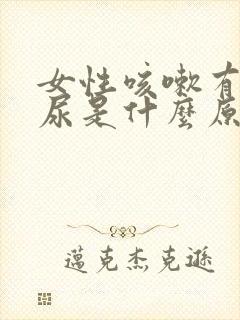 女性咳嗽有
尿是什麼原
邁克杰克遜